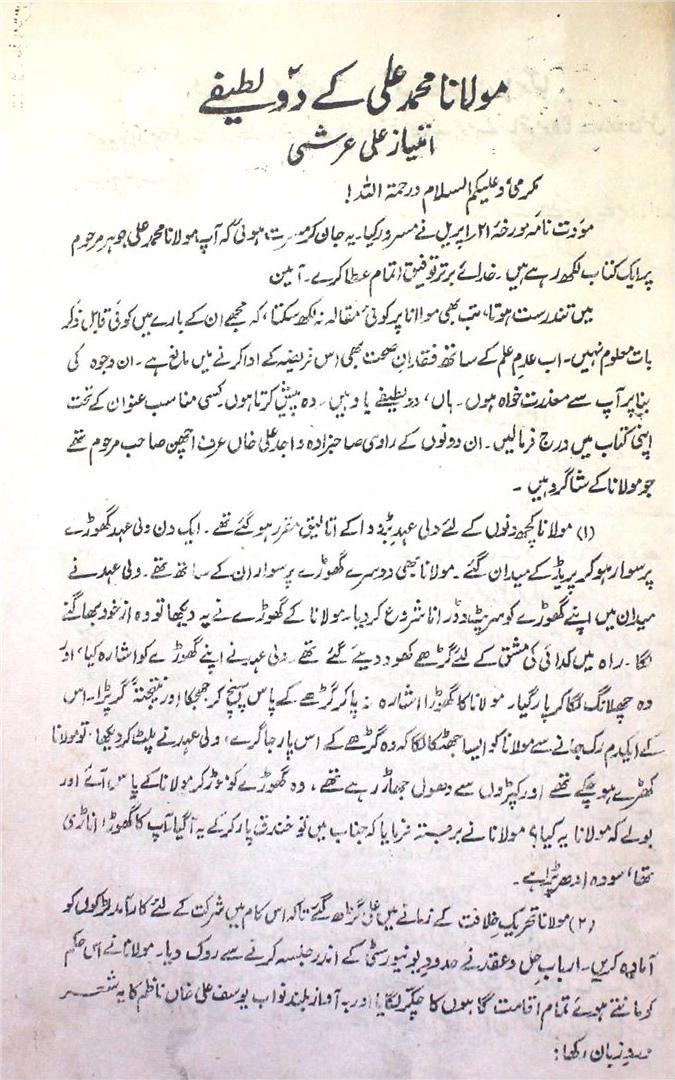 مولانا محمد علی کے دو لطیفے
امتیاز علی عرشی
مکرمی وعلیکم السلام ورحمۃ اللہ!
مودت نامہ مورخہ ۲۱ اپریل نے مسرور کیا۔ یہ جان کر مسرت ہوئی کہ آپ مولانا محمد علی جوہر مرحوم
پر ایک کتاب لکھ رہے ہیں۔ خدائے برتر توفیق اتمام عطا کرے۔ آمین
میں تندرست ہوتا، تب بھی مولانا پر کوئی مقالہ نہ لکھ سکتا، کہ مجھے ان کے بارے میں کوئی قابل ذکر
بات معلوم نہیں۔ اب عدم علم کے ساتھ فقدانِ صحت بھی اس فریضہ کے ادا کرنے میں مانع ہے۔ ان وجوہ کی
بنا پر آپ سے معذرت خواہ ہوں۔ ہاں، دو لطیفے یاد ہیں۔ وہ پیش کرتا ہوں۔ کسی مناسب عنوان کے تحت
اپنی کتاب میں درج فرمالیں۔ ان دونوں کے راوی صاحبزادہ واجد علی خاں عرف اچھن صاحب مرحوم تھے
جو مولانا کے شاگرد ہیں۔
(۱) مولانا کچھ دنوں کے لئے ولی عہد بڑودا کے اتالیق مقرر ہو گئے تھے۔ ایک دن ولی عہد گھوڑے
پر سوار ہو کر پریڈ کے میدان گئے۔ مولانا بھی دوسرے گھوڑے پر سوار ان کے ساتھ تھے۔ ولی عہد نے
میدان میں اپنے گھوڑے کو سرپٹ دوڑانا شروع کر دیا۔ مولانا کے گھوڑے نے یہ دیکھا تو وہ از خود بھاگنے
لگا۔ راہ میں کدائی کی مشق کے لئے گڑھے کھود دیئے گئے تھے۔ ولی عہد نے اپنے گھوڑے کو اشارہ کیا، اور
وہ چھلانگ لگا کر پار گیا۔ مولانا کا گھوڑا اشارہ نہ پا کر گڑھے کے پاس پہنچ کر جھجکا اور نتیجتہً گر پڑا۔ اس
کے ایکدم رک جانے سے مولانا کو ایسا جھٹکا لگا کہ وہ گڑھے کے اس پار جا گرے، ولی عہد نے پلٹ کر دیکھا۔ تو مولانا
کھڑے ہو چکے تھے اور کپڑوں سے دھول جھاڑ رہے تھے، وہ گھوڑے کو موڑ کر مولانا کے پاس آئے اور
بولے کہ مولانا یہ کیا؟ مولانا نے برجستہ فرمایا کہ جناب میں تو خندق پار کر کے یہ آگیا، آپ کا گھوڑا اناڑی
تھا، سو وہ ادھر پڑا ہے۔
(۲) مولانا تحریک خلافت کے زمانے میں علی گڑھ گئے تاکہ اس کام میں شرکت کے لئے کارآمد لڑکوں کو
آمادہ کریں۔ ارباب حل و عقد نے حدود یونیورسٹی کے اندر جلسہ کرنے سے روک دیا۔ مولانا نے اس حکم
کو مانتے ہوئے تمام اقامت گاہوں کا چکر لگایا اور بہ آواز بلند نواب یوسف علی خاں ناظم کا یہ شعر
ورد زبان رکھا: